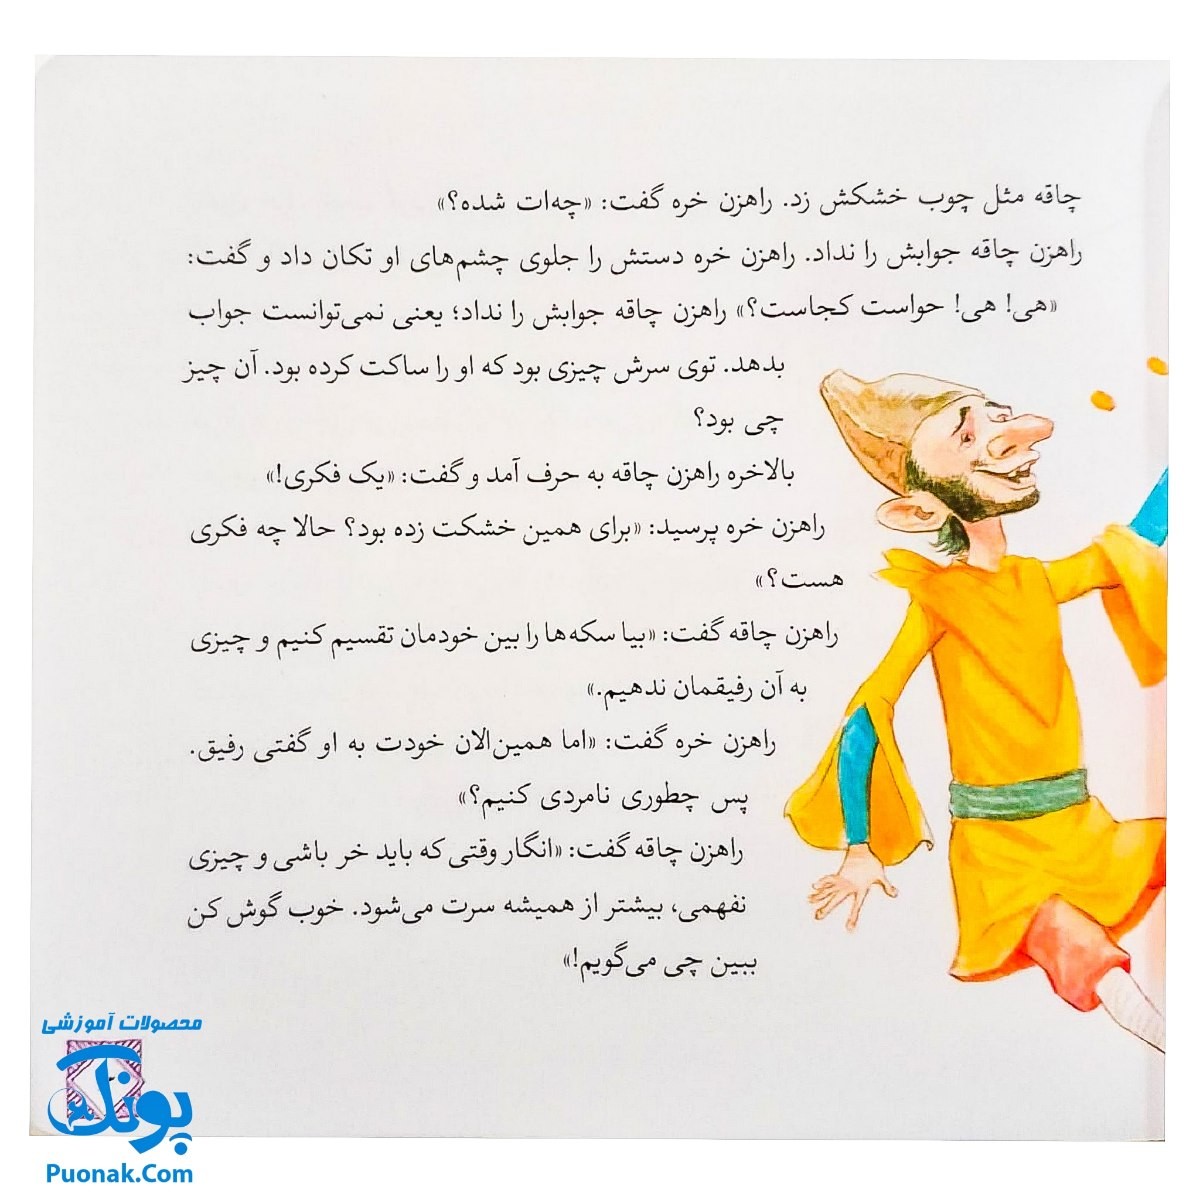 چاقه مثل چوب خشکش زد. راهزن خره گفت: «چه‌ات شده؟»
راهزن چاقه جوابش را نداد. راهزن خره دستش را جلوی چشم‌های او تکان داد و گفت:
«هی! هی! حواست کجاست؟» راهزن چاقه جوابش را نداد؛ یعنی نمی‌توانست جواب
بدهد. توی سرش چیزی بود که او را ساکت کرده بود. آن چیز
چی بود؟
بالاخره راهزن چاقه به حرف آمد و گفت: «یک فکری!»
راهزن خره پرسید: «برای همین خشکت زده بود؟ حالا چه فکری
هست؟»
راهزن چاقه گفت: «بیا سکه‌ها را بین خودمان تقسیم کنیم و چیزی
به آن رفیقمان ندهیم.»
راهزن خره گفت: «اما همین‌الان خودت به او گفتی رفیق.
پس چطوری نامردی کنیم؟»
راهزن چاقه گفت: «انگار وقتی که باید خر باشی و چیزی
نفهمی، بیشتر از همیشه سرت می‌شود. خوب گوش کن
ببین چی می‌گویم!»
محصولات آموزشی
پونک
Puonak.Com